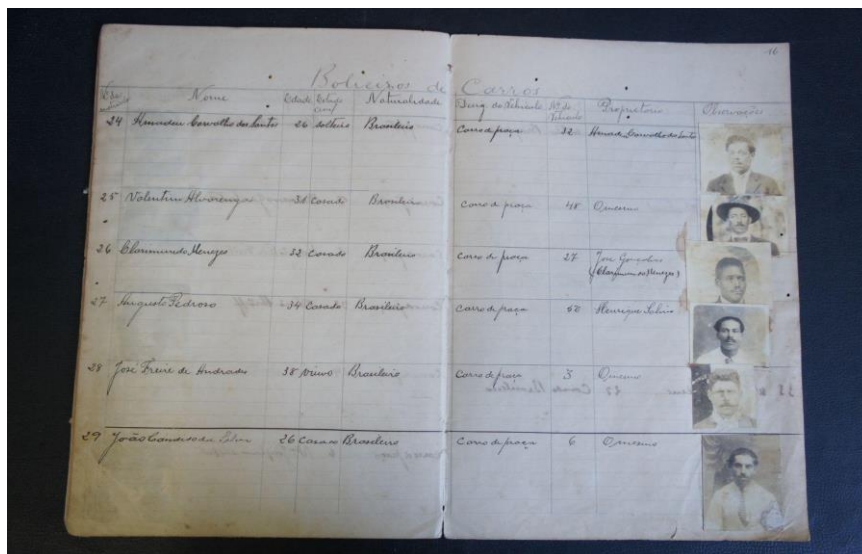 16
Bolieiros de Carros
Nome Edade Estado civil Naturalidade Desig. do Vehiculo Nº do Vehiculo Proprietario Observações
24 Amadeu Carvalho dos Santos 26 solteiro Brasileiro Carro de praça 32 Amadeu Carvalho dos Santos
25 Valentim Alvarenga Casado Brasileiro Carro de praça 48 O mesmo
26 Clarimundo Menezes 32 Casado Brasileiro Carro de praça 27 José Gonçalves
(Clarimundo Menezes)
27 Augusto Pedroso 34 Casado Brasileiro Carro de praça Henrique
28 José Freire de Andrade 38 viuvo Brasileiro Carro de praça 3 O mesmo
29 João Candido da Silva 26 Casado Brasileiro Carro de praça 6 O mesmo